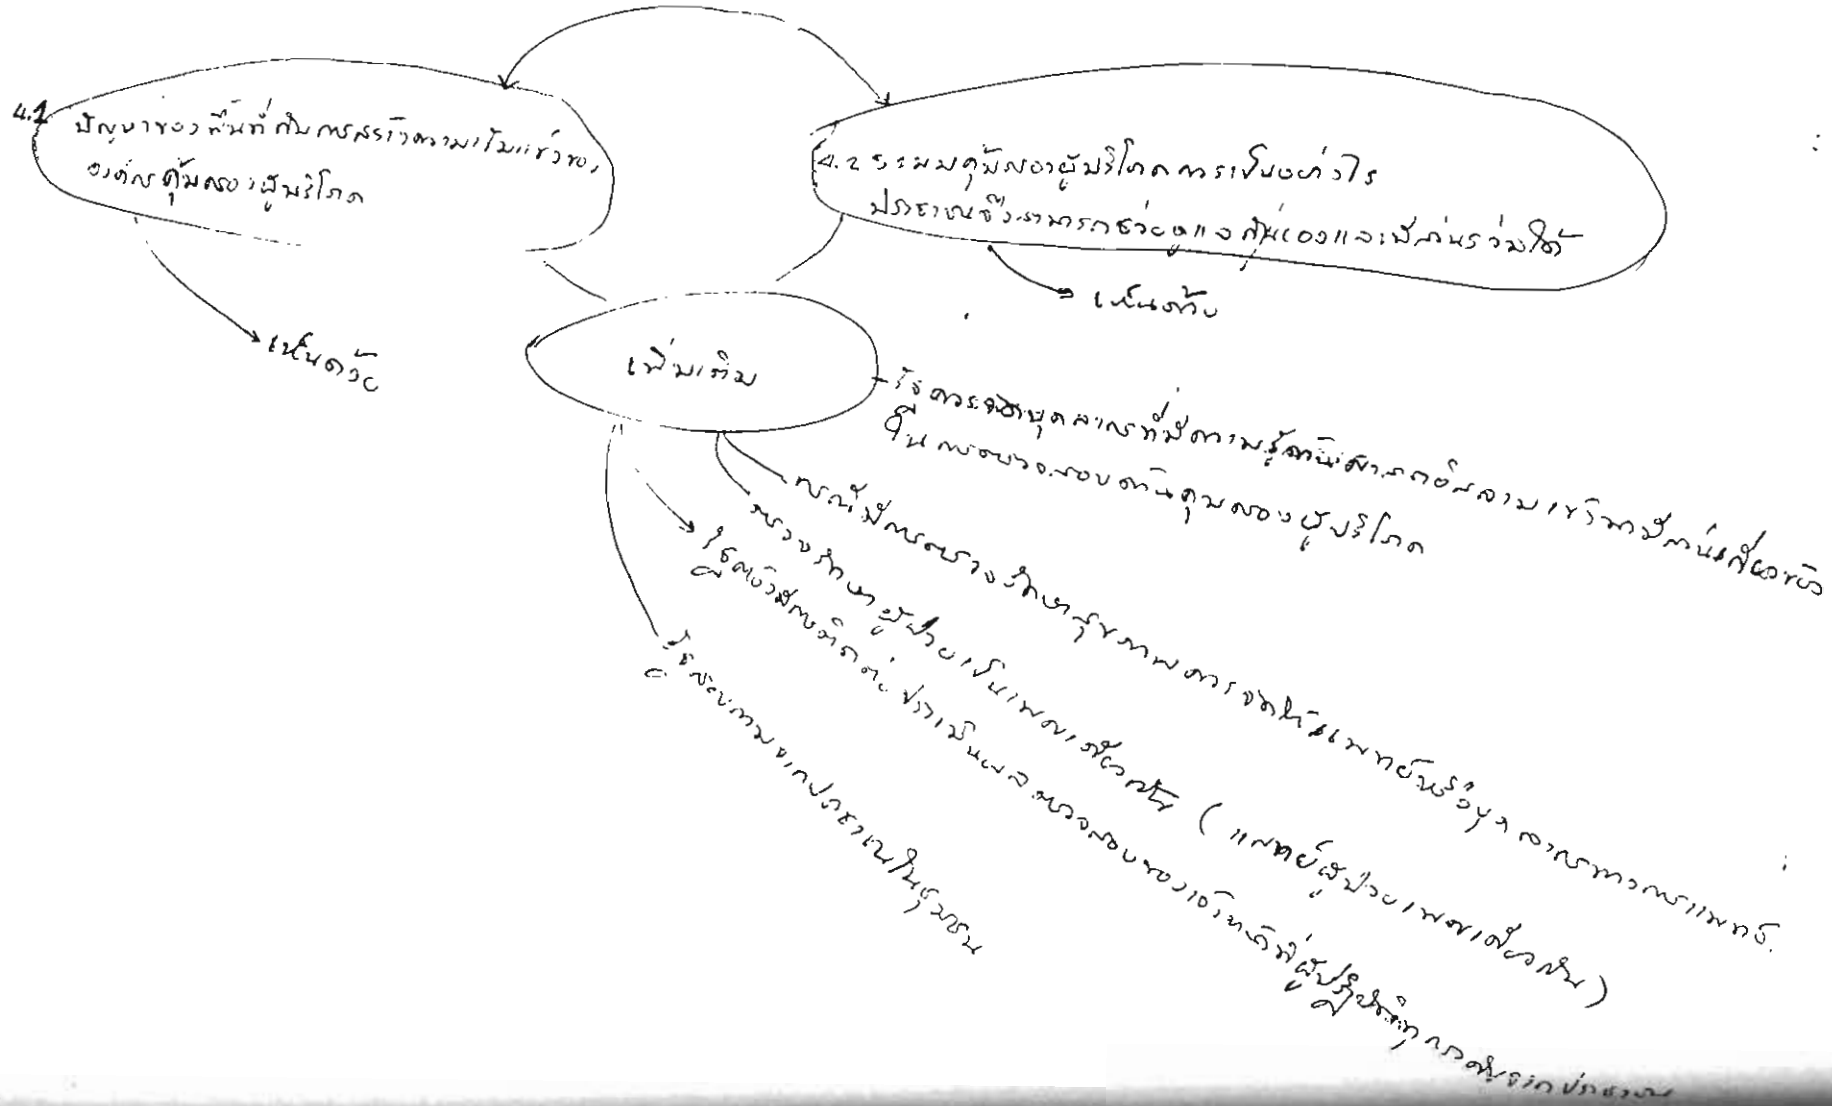 4.1 ปัญหาของพื้นที่กับการสร้างความเข้มแข็งของ
องค์กรคุ้มครองผู้บริโภค
เห็นด้วย
4.2 ระบบคุ้มครองผู้บริโภคควรเป็นอย่างไร
ประชาชนจึงสามารถช่วยดูแลกันเองและมีส่วนร่วมได้
เห็นด้วย
เพิ่มเติม
- รัฐควรจัดบุคลากรที่มีความรู้ด้านศาสนาอิสลามเข้ามามีส่วนเกี่ยวข้อง
ในการตรวจสอบด้านคุ้มครองผู้บริโภค
กรณีมีการตรวจรักษาสุขภาพควรจัดให้แพทย์หรือบุคลากรทางการแพทย์
ตรวจรักษาผู้ป่วยเป็นเพศเดียวกัน (แพทย์ผู้ป่วยเพศเดียวกัน)
รัฐต้องมีการติดต่อประเมินผลตรวจสอบของเจ้าหน้าที่ผู้ปฏิบัติทุกระดับจากประชาชน
รัฐสอบถามจากประชาชนในชุมชน